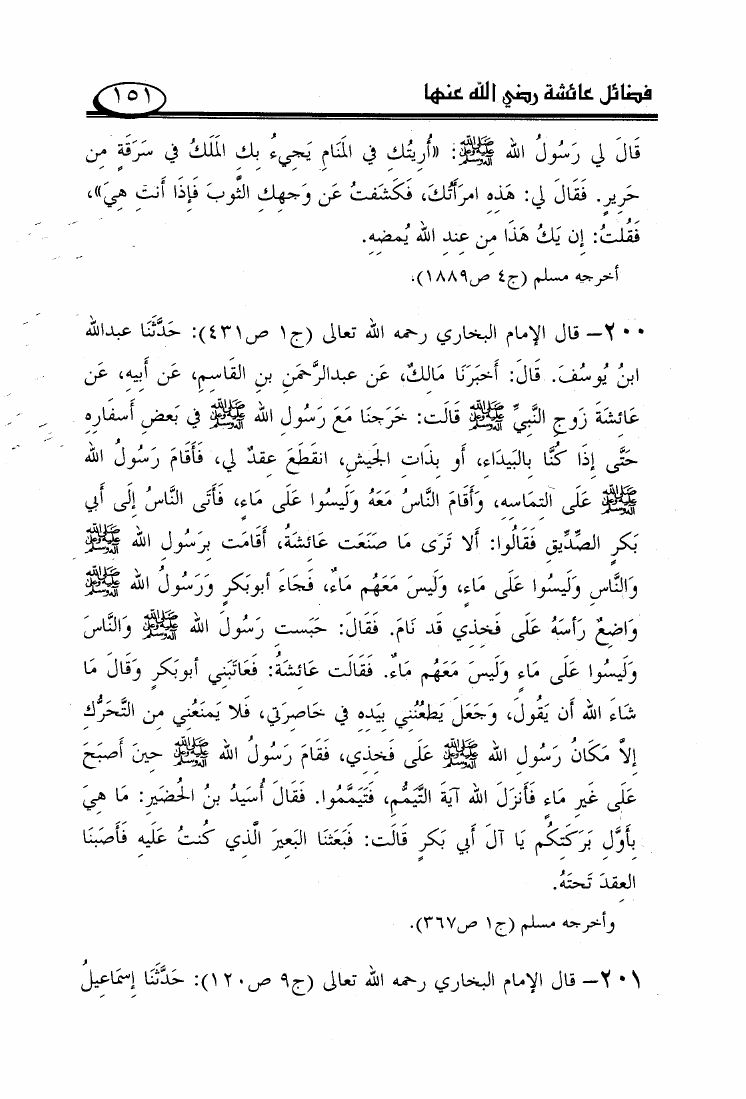 فضائل عائشة رضي الله عنها
١٥١
قَالَ لي رَسُولُ الله ﷺ: «أُرِيتُكِ في المَنَامِ يَجِيءُ بِكِ المَلَكُ في سَرَقَةٍ مِن
حَرِيرٍ. فَقَالَ لي: هَذِهِ امرَأَتُكَ، فَكَشَفتُ عَن وَجهِكِ الثَّوبَ فَإِذَا أَنتِ هِيَ»،
فَقُلتُ: إِن يَكُ هَذَا مِن عِندِ الله يُمضِهِ.
أخرجه مسلم (ج٤ ص١٨٨٩).
٢٠٠– قال الإمام البخاري رحمه الله تعالى (ج١ ص٤٣١): حَدَّثَنَا عبدالله
ابنُ يُوسُفَ. قَالَ: أَخبَرَنَا مَالِكٌ، عَن عبدالرَّحمَنِ بنِ القَاسِمِ، عَن أَبِيهِ، عَن
عَائِشَةَ زَوجِ النَّبِيِّ ﷺ قَالَت: خَرَجنَا مَعَ رَسُولِ الله ﷺ في بَعضِ أَسفَارِهِ
حَتَّى إِذَا كُنَّا بِالبَيدَاءِ، أَو بِذَاتِ الجَيشِ، انقَطَعَ عِقدٌ لي، فَأَقَامَ رَسُولُ الله
ﷺ عَلَى التِمَاسِهِ، وَأَقَامَ النَّاسُ مَعَهُ وَلَيسُوا عَلَى مَاءٍ، فَأَتَى النَّاسُ إِلَى أَبي
بَكرٍ الصِّدِّيقِ فَقَالُوا: أَلا تَرَى مَا صَنَعَت عَائِشَةُ، أَقَامَت بِرَسُولِ الله ﷺ
وَالنَّاسِ وَلَيسُوا عَلَى مَاءٍ، وَلَيسَ مَعَهُم مَاءٌ، فَجَاءَ أبوبَكرٍ وَرَسُولُ الله ﷺ
وَاضِعٌ رَأسَهُ عَلَى فَخِذِي قَد نَامَ. فَقَالَ: حَبَستِ رَسُولَ الله ﷺ وَالنَّاسَ
وَلَيسُوا عَلَى مَاءٍ وَلَيسَ مَعَهُم مَاءٌ. فَقَالَت عَائِشَةُ: فَعَاتَبَنِي أبوبَكرٍ وَقَالَ مَا
شَاءَ الله أَن يَقُولَ، وَجَعَلَ يَطعُنُنِي بِيَدِهِ في خَاصِرَتِي، فَلا يَمنَعُنِي مِن التَّحَرُّكِ
إِلاَّ مَكَانُ رَسُولِ الله ﷺ عَلَى فَخِذِي، فَقَامَ رَسُولُ الله ﷺ حِينَ أَصبَحَ
عَلَى غَيرِ مَاءٍ فَأَنزَلَ الله آيَةَ التَّيَمُّمِ، فَتَيَمَّمُوا. فَقَالَ أُسَيدُ بنُ الحُضَيرِ: مَا هِيَ
بِأَوَّلِ بَرَكَتِكُم يَا آلَ أَبي بَكرٍ قَالَت: فَبَعَثنَا البَعِيرَ الَّذِي كُنتُ عَلَيهِ فَأَصَبنَا
العِقدَ تَحتَهُ.
وأخرجه مسلم (ج١ ص٣٦٧).
٢٠١– قال الإمام البخاري رحمه الله تعالى (ج٩ ص١٢٠): حَدَّثَنَا إِسمَاعِيلُ